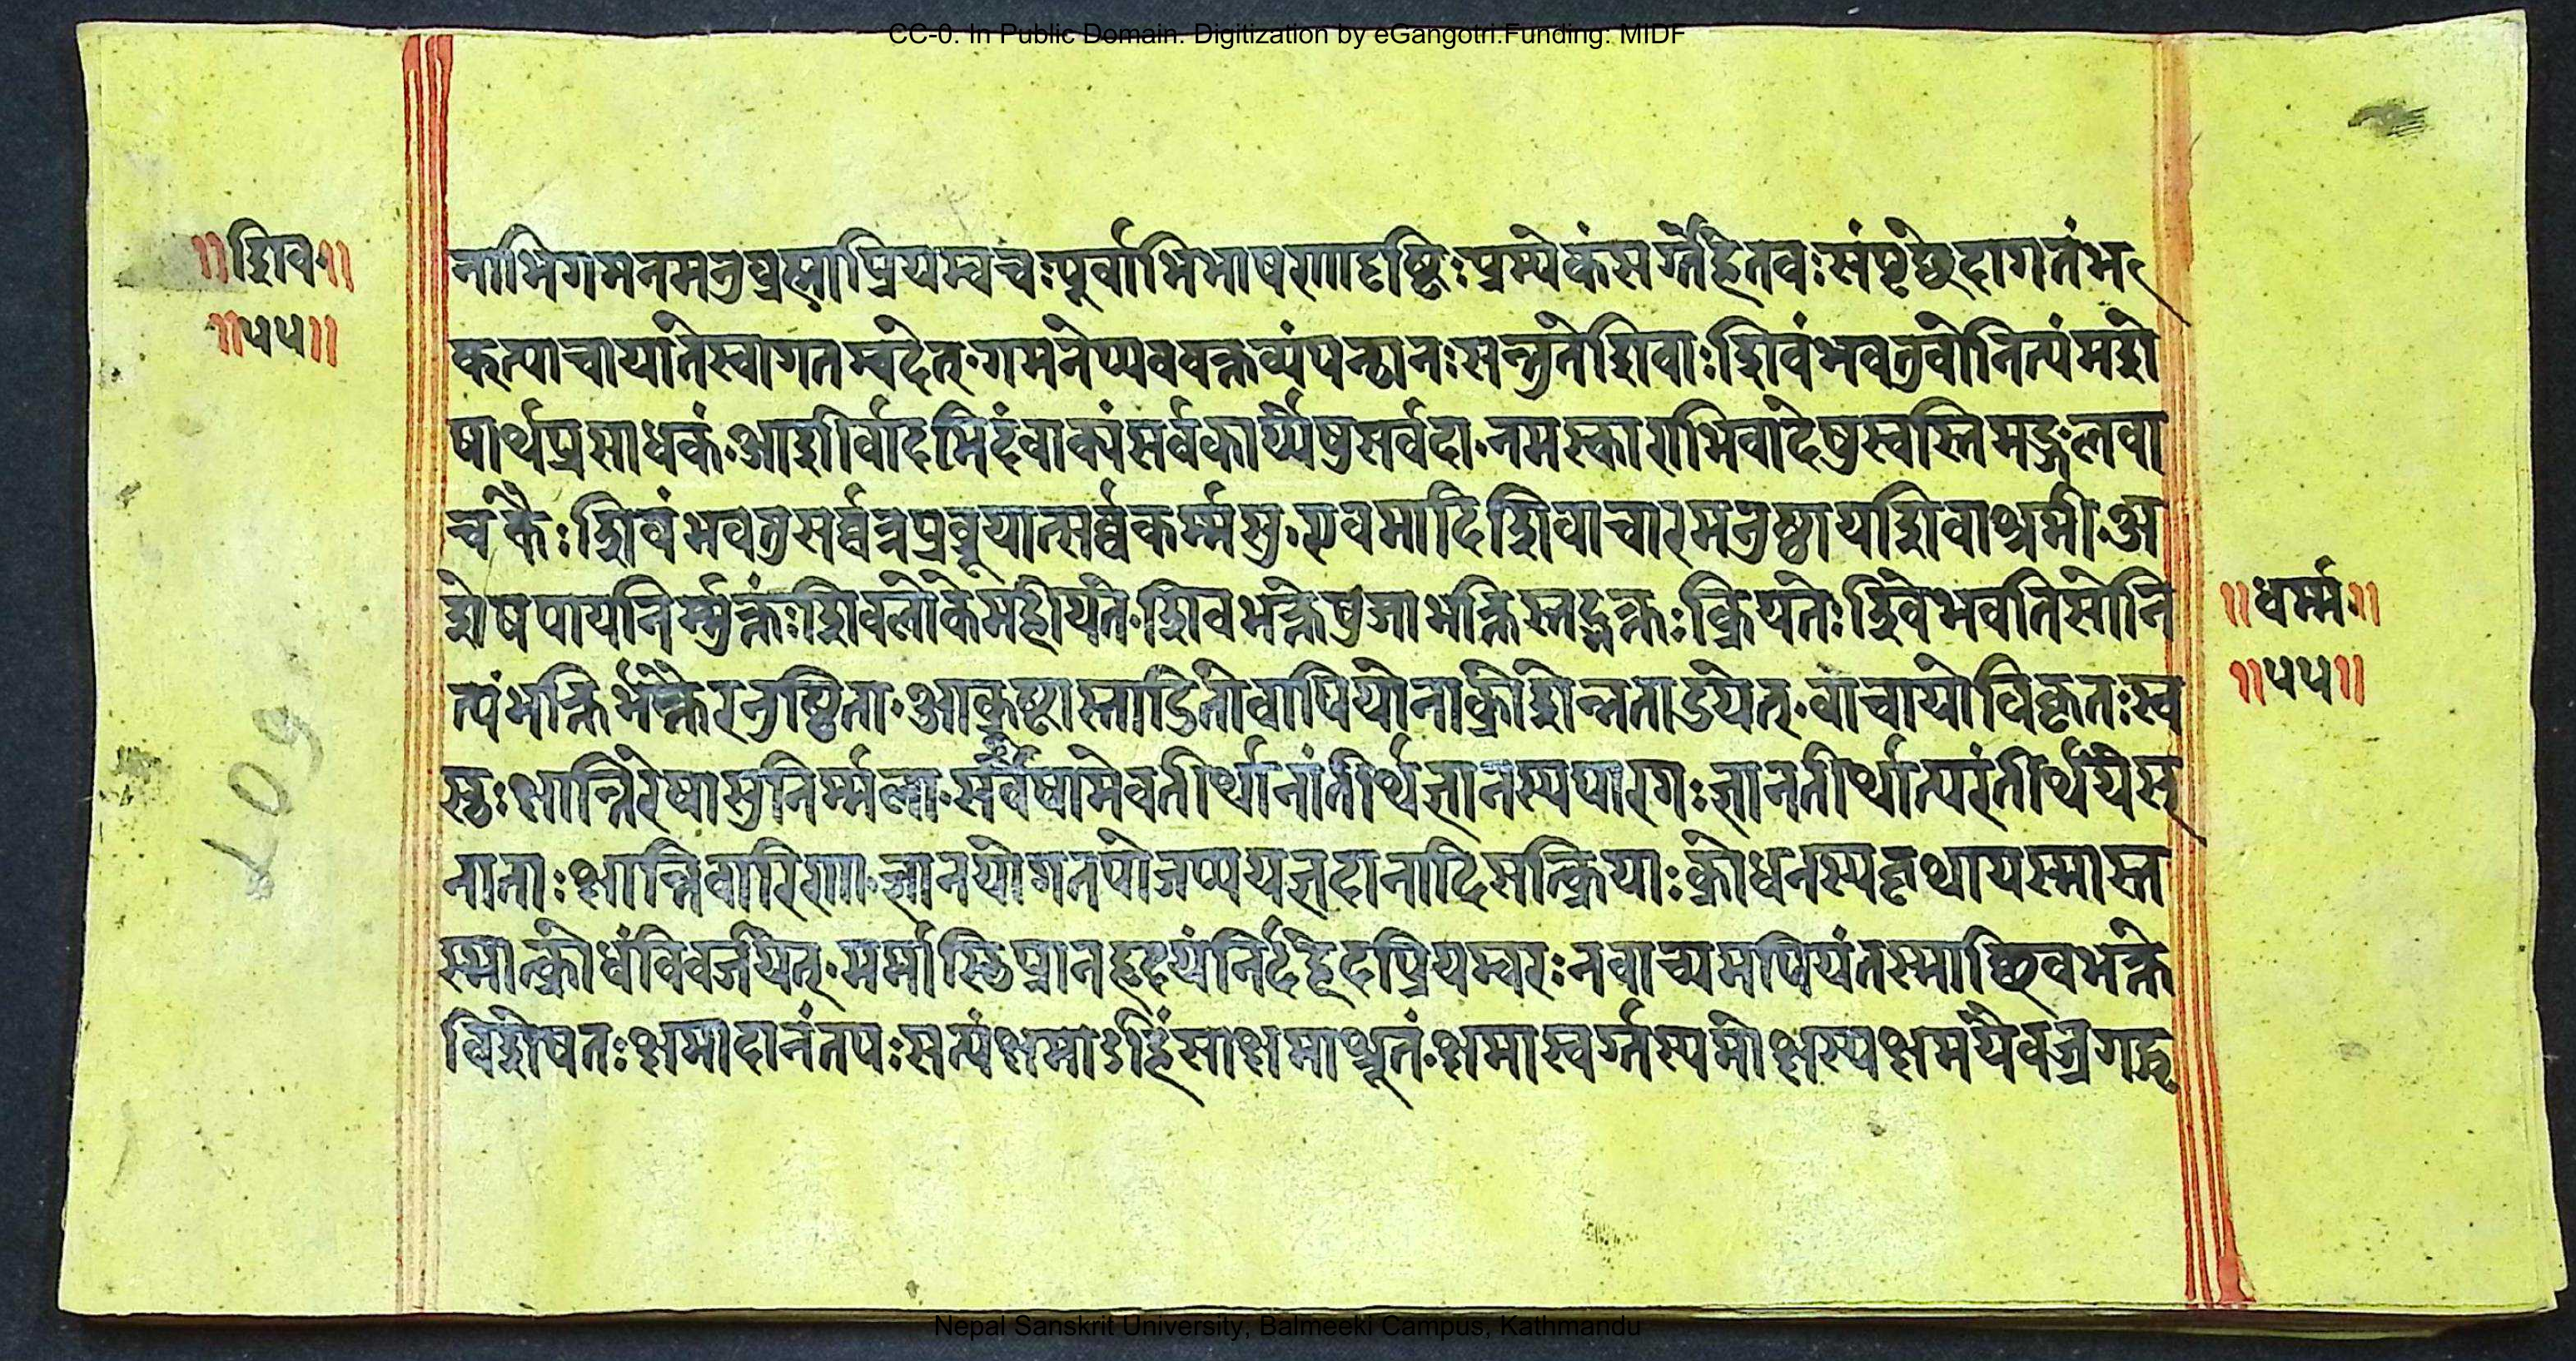 CC-0. In Public Domain. Digitization by eGangotri.Funding: MIDF
॥शिव॥
॥५५॥
नाभिगमनमनुप्रस्नाप्रियम्वचःपूर्वाभिभाषणादृष्टिःप्रम्येकंसर्गहेतवःसंपृछेदागतंभ
कत्याचायांतेस्वागतम्वदेत्·गमनेप्यववक्तव्यंपन्थानःसन्तुतेशिवाःशिवंभवतुवोनित्यंमशे
षार्थप्रसाधकं·आशीर्वादमिदंवाक्यंसर्वकार्य्येषुसर्वदा·नमस्काराभिवादेषुस्वस्तिमङ्गलवा
चकैःशिवंभवतुसर्व्वत्रप्रब्रूयात्सर्व्वकर्म्मसु·एवमादिशिवाचारमनुष्ठायशिवाश्रमी·अ
शेषपापनिर्म्मुक्तंःशिवलोकेमहीयते·शिवभक्तेषुजाभक्तिस्तद्भक्तःक्रियतेःशिवेभवतिसोनि
त्यंभक्तिर्भक्तैरनुष्ठिता·आक्रुष्टास्ताडितोवापियोनाक्रोशेन्नताडयेत्·वाचायोविकृतःस्व
स्तःक्षान्तिरेषासुनिर्म्मला·सर्वेषामेवतीर्थानांतीर्थज्ञानस्यपारगःज्ञानतीर्थात्परंतीर्थयेस्
नाताःक्षान्तिवारिणा·ज्ञानयोगतपोजप्ययज्ञदानादिसत्क्रियाःक्रोधनस्यवृथायस्मास्त
स्मात्क्रोधंविवर्जयेत्·मर्मास्तिप्रानहृदयंनिर्दहेदप्रियम्वरःनवाच्यमपियंतस्माछिवभक्ते
विशेषतःक्षमादानंतपःसत्यंक्षमाऽहिंसाक्षमाश्रुतं·क्षमास्वर्गस्यमोक्षस्यक्षमयेवज्रगद्धृ
॥धर्म्म॥
॥५५॥
Nepal Sanskrit University, Balmeeki Campus, Kathmandu